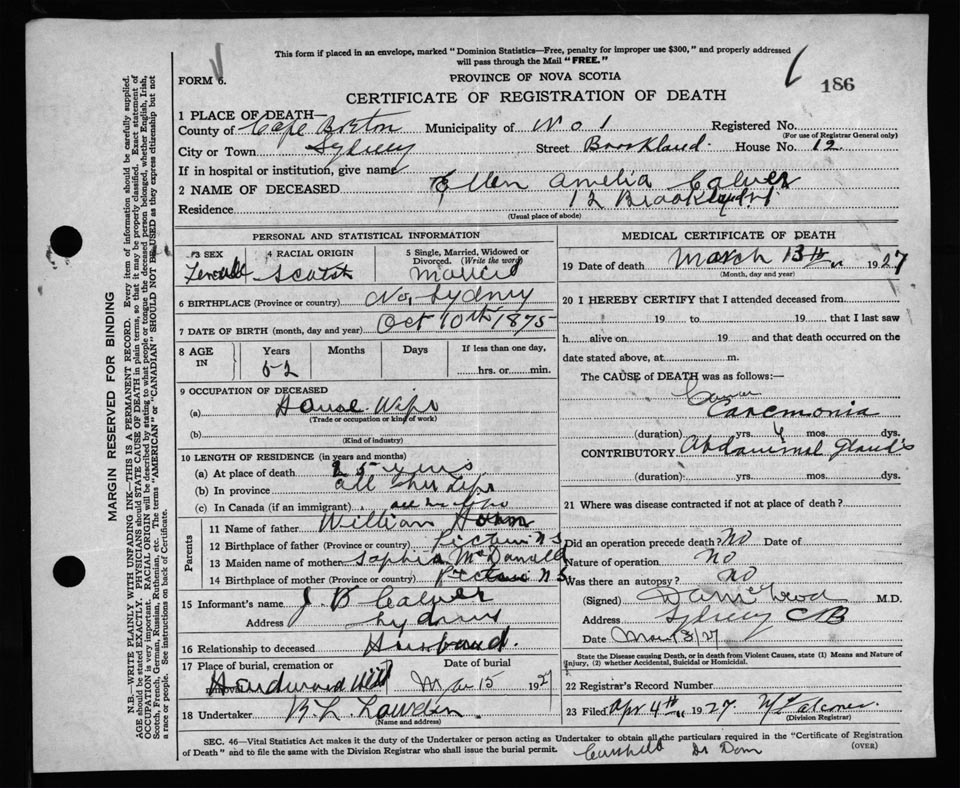 This form if placed in an envelope, marked "Dominion Statistics—Free, penalty for improper use $300," and properly addressed
will pass through the Mail "FREE."
FORM 6.
PROVINCE OF NOVA SCOTIA
186
CERTIFICATE OF REGISTRATION OF DEATH
1 PLACE OF DEATH—
County of Cape Breton Municipality of No 1 Registered No.
(For use of Registrar General only)
City or Town Sydney Street Brookland House No. 12
If in hospital or institution, give name
2 NAME OF DECEASED Ellen Amelia Calver
Residence 12 Brookland
(Usual place of abode)
PERSONAL AND STATISTICAL INFORMATION
3 SEX 4 RACIAL ORIGIN 5 Single, Married, Widowed or
Divorced. (Write the word)
Female Scotch Married
6 BIRTHPLACE (Province or country) No. Sydney
7 DATE OF BIRTH (month, day and year) Oct 10th 1875
8 AGE IN Years Months Days If less than one day,
52 hrs. or min.
9 OCCUPATION OF DECEASED
(a) House Wife
(Trade or occupation or kind of work)
(b)
(Kind of industry)
10 LENGTH OF RESIDENCE (in years and months)
(a) At place of death 25 years
(b) In province all her life
(c) In Canada (if an immigrant) all her life
Parents
11 Name of father William
12 Birthplace of father (Province or country) Pictou N S
13 Maiden name of mother Sophia McDonald
14 Birthplace of mother (Province or country) Pictou N S
15 Informant's name J. B Calver
Address Sydney
16 Relationship to deceased Husband.
17 Place of burial, cremation or removal Date of burial
Hardwood Hill Mar 15 192
18 Undertaker
(Name and address)
MEDICAL CERTIFICATE OF DEATH
19 Date of death March 13th 1927
(Month, day and year)
20 I HEREBY CERTIFY that I attended deceased from
19 to 19 that I last saw
h alive on 19 and that death occurred on the
date stated above, at m.
The CAUSE of DEATH was as follows:—
(duration) yrs. 6 mos. dys.
CONTRIBUTORY Abdominal Glands
(duration) yrs. mos. dys.
21 Where was disease contracted if not at place of death?
Did an operation precede death? No Date of
Nature of operation No
Was there an autopsy? No
(Signed) M.D.
Address Sydney CB
Date Mar 13/27
State the Disease Causing Death, or in death from Violent Causes, state (1) Means and Nature of
Injury, (2) whether Accidental, Suicidal or Homicidal.
22 Registrar's Record Number
23 Filed Apr 4th 1927
(Division Registrar)
SEC. 46—Vital Statistics Act makes it the duty of the Undertaker or person acting as Undertaker to obtain all the particulars required in the "Certificate of Registration
of Death" and to file the same with the Division Registrar who shall issue the burial permit.
(OVER)
MARGIN RESERVED FOR BINDING
N.B.—WRITE PLAINLY WITH UNFADING INK—THIS IS A PERMANENT RECORD. Every item of information should be carefully supplied.
AGE should be stated EXACTLY. PHYSICIANS should STATE CAUSE OF DEATH in plain terms, so that it may be properly classified. Exact statement of
OCCUPATION is very important. RACIAL ORIGIN will be described by stating to what people or tongue the deceased person belonged, whether English, Irish,
Scotch, French, German, Russian, Ruthenian, etc. The terms "AMERICAN" or "CANADIAN" SHOULD NOT BE USED as they express citizenship but not
a race or people. See instructions on back of Certificate.